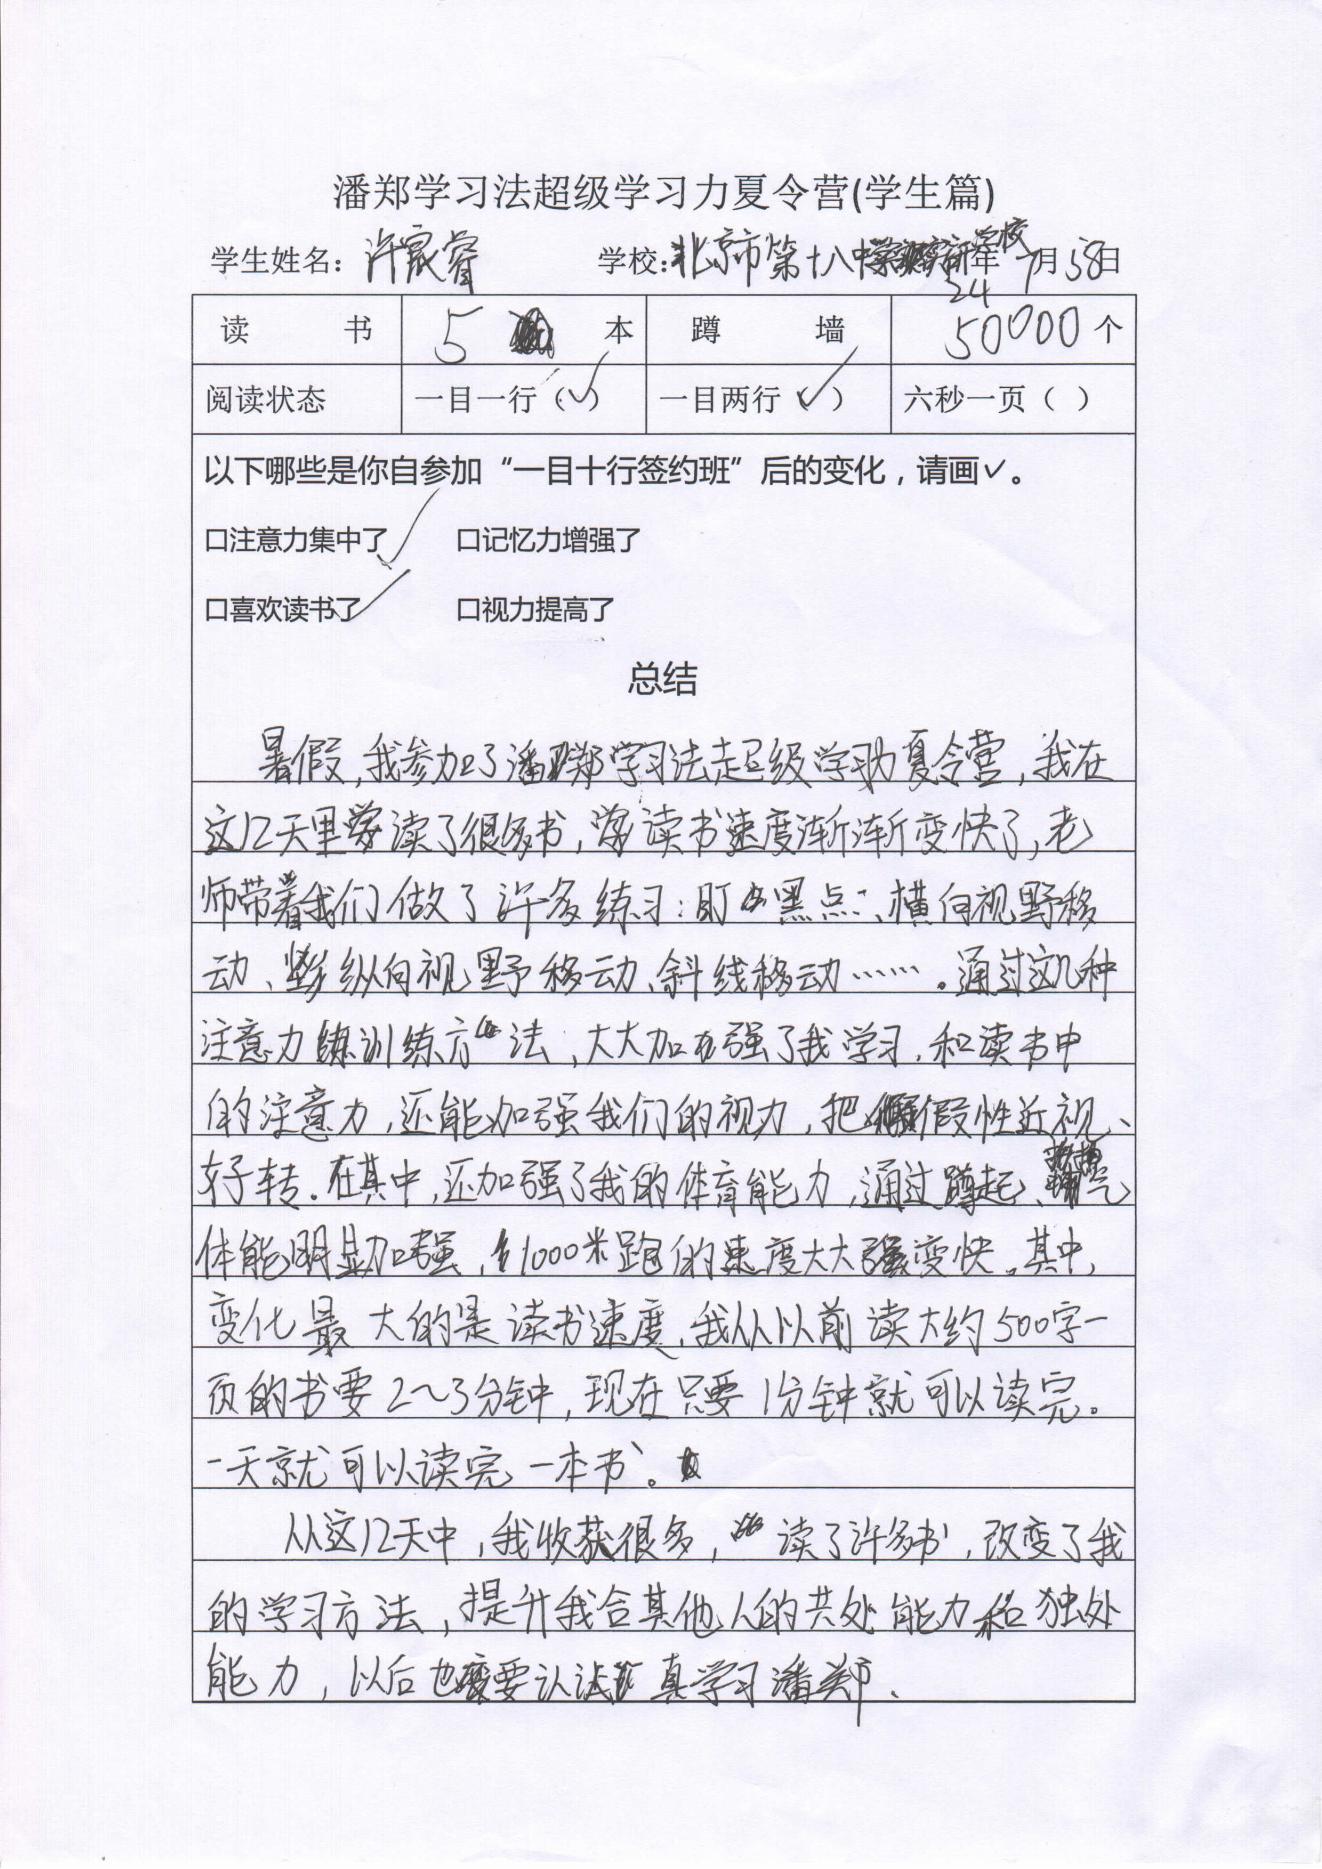 潘郑学习法超级学习力夏令营(学生篇)
学生姓名：许宸睿 学校：北京市第十八中学 学校 24年7月28日
读 书 5 本 蹲 墙 50000个
阅读状态 一目一行（✓） 一目两行（✓） 六秒一页（ ）
以下哪些是你自参加“一目十行签约班”后的变化，请画✓。
口注意力集中了✓ 口记忆力增强了
口喜欢读书了✓ 口视力提高了
总结
暑假，我参加了潘郑学习法超级学习力夏令营，我在
这12天里读了很多书，读书速度渐渐变快了，老
师带着我们做了许多练习：盯黑点、横向视野移
动、纵向视野移动、斜线移动……。通过这几种
注意力训练方法，大大加强了我学习，和读书中
的注意力，还能加强我们的视力，把假性近视、
好转。在其中，还加强了我的体育能力，通过蹲起、
体能明显加强，1000米跑的速度大大变快。其中，
变化最大的是读书速度，我从以前读大约500字一
页的书要2~3分钟，现在只要1分钟就可以读完。
一天就可以读完一本书。
从这12天中，我收获很多，读了许多书，改变了我
的学习方法，提升我合其他人的共处能力和独处
能力，以后也要认真学习潘郑、